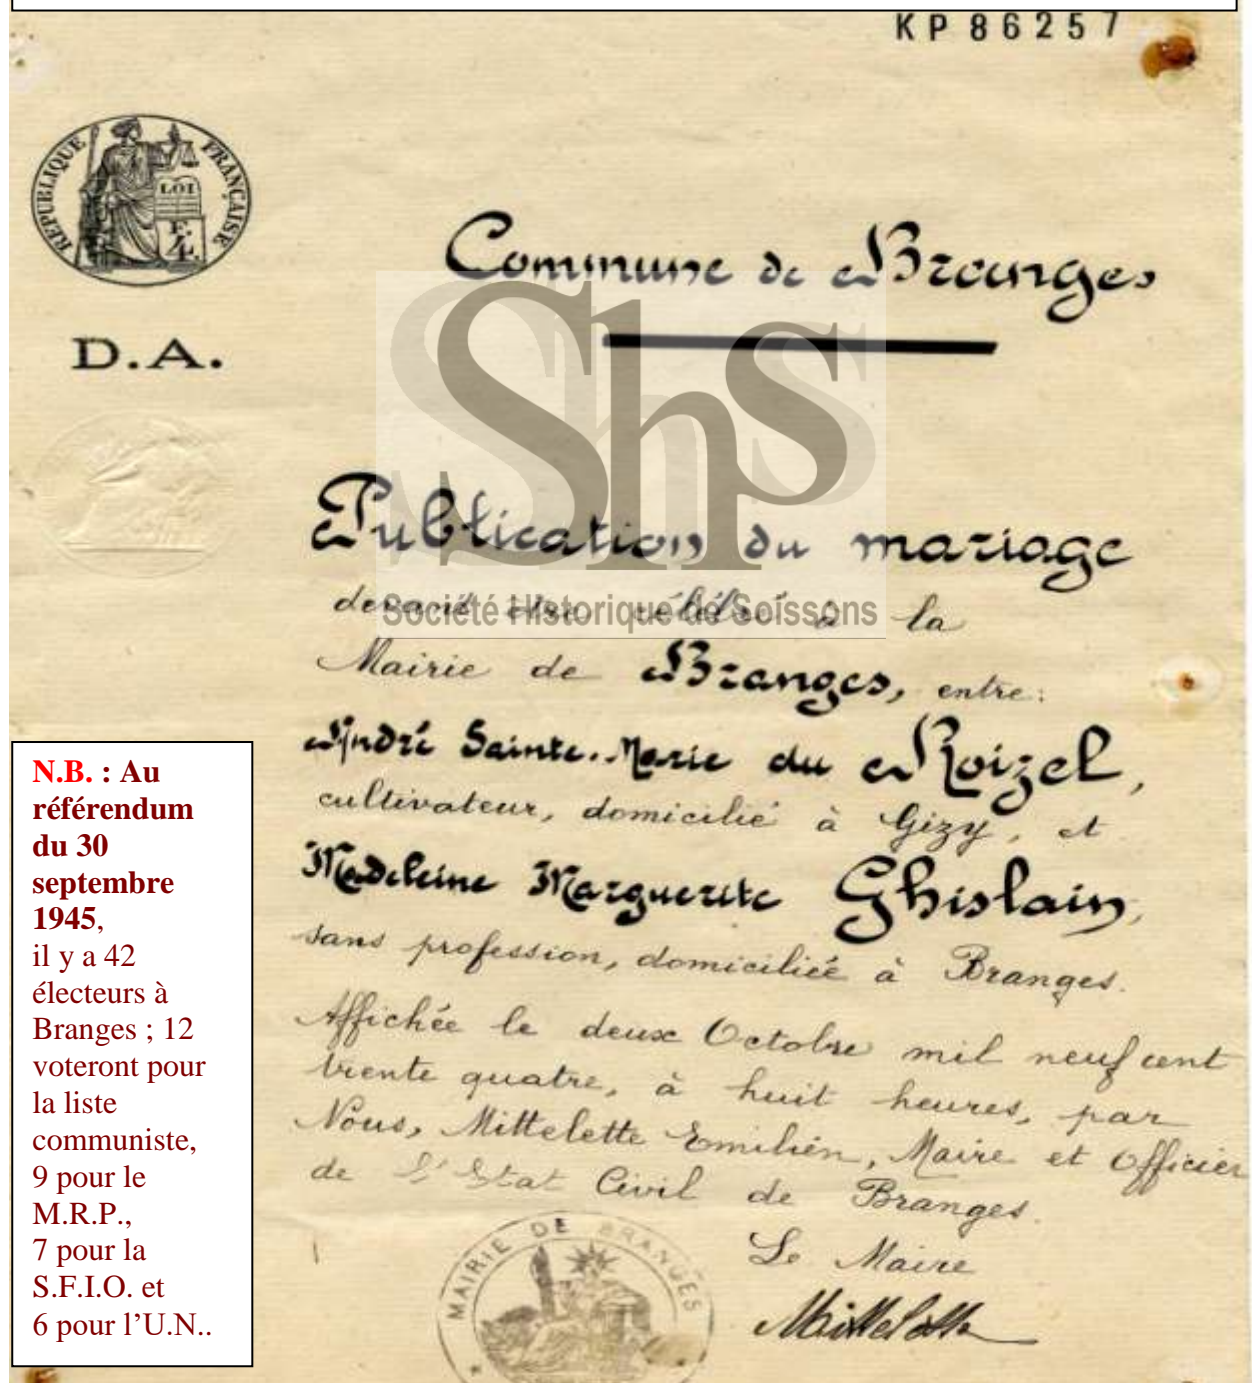 KP 86257
RÉPUBLIQUE FRANÇAISE
LOI
D.A.
Commune de Branges
Shs
Société Historique de Soissons
Publication du mariage
devant être célébré à la
Mairie de Branges, entre:
André Sainte-Marie du Noizel,
cultivateur, domicilié à Gizy, et
Madeleine Marguerite Ghislain,
sans profession, domiciliée à Branges.
Affichée le deux Octobre mil neuf cent
trente quatre, à huit heures, par
Nous, Mittelette Emilien, Maire et Officier
de l'Etat Civil de Branges.
Le Maire
Mittelette
MAIRIE DE BRANGES
N.B. : Au
référendum
du 30
septembre
1945,
il y a 42
électeurs à
Branges ; 12
voteront pour
la liste
communiste,
9 pour le
M.R.P.,
7 pour la
S.F.I.O. et
6 pour l'U.N..